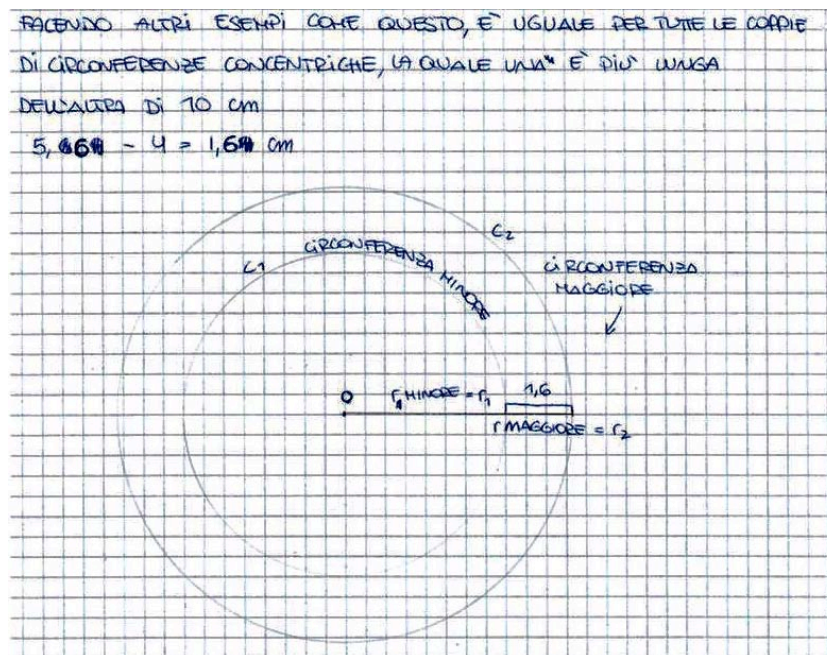 FACENDO ALTRI ESEMPI COME QUESTO, E' UGUALE PER TUTTE LE COPPIE
DI CIRCONFERENZE CONCENTRICHE, LA QUALE UNA* E' PIU' LUNGA
DELL'ALTRA DI 10 cm
5,6 - 4 = 1,6 cm
C2
C1
CIRCONFERENZA MINORE
CIRCONFERENZA
MAGGIORE
O
r MINORE = r1
1,6
r MAGGIORE = r2